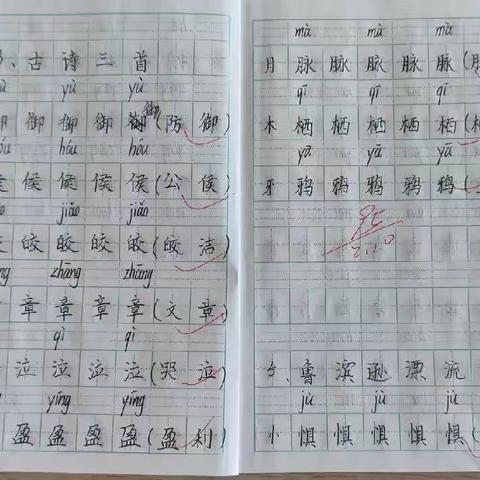 、古诗三首
yù yù
御
御 御 御 (防御)
hóu hóu
侯 侯 侯 侯 (公侯)
jiǎo jiǎo
皎 皎 皎 皎 (皎洁)
zhāng zhāng
章 章 章 章 (文章)
qì qì
泣 泣 泣 泣 (哭泣)
yíng yíng
盈 盈 盈 盈 (盈利)
mà mà mà
月 脉 脉 脉 脉 (
qī qī qī
木 栖 栖 栖 栖 (
yā yā yā
牙 鸦 鸦 鸦 鸦 (
2.10
、鲁滨逊漂流
jù jù jù
小 惧 惧 惧 惧 (